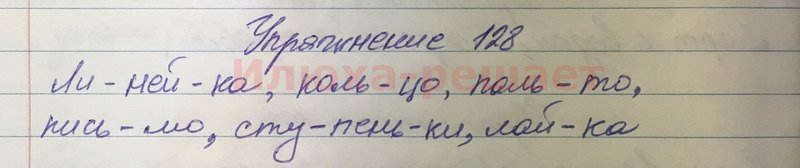 Упражнение 128
Илюха-решает
Ли-ней-ка, коль-цо, паль-то,
пись-мо, сту-пень-ки, лай-ка